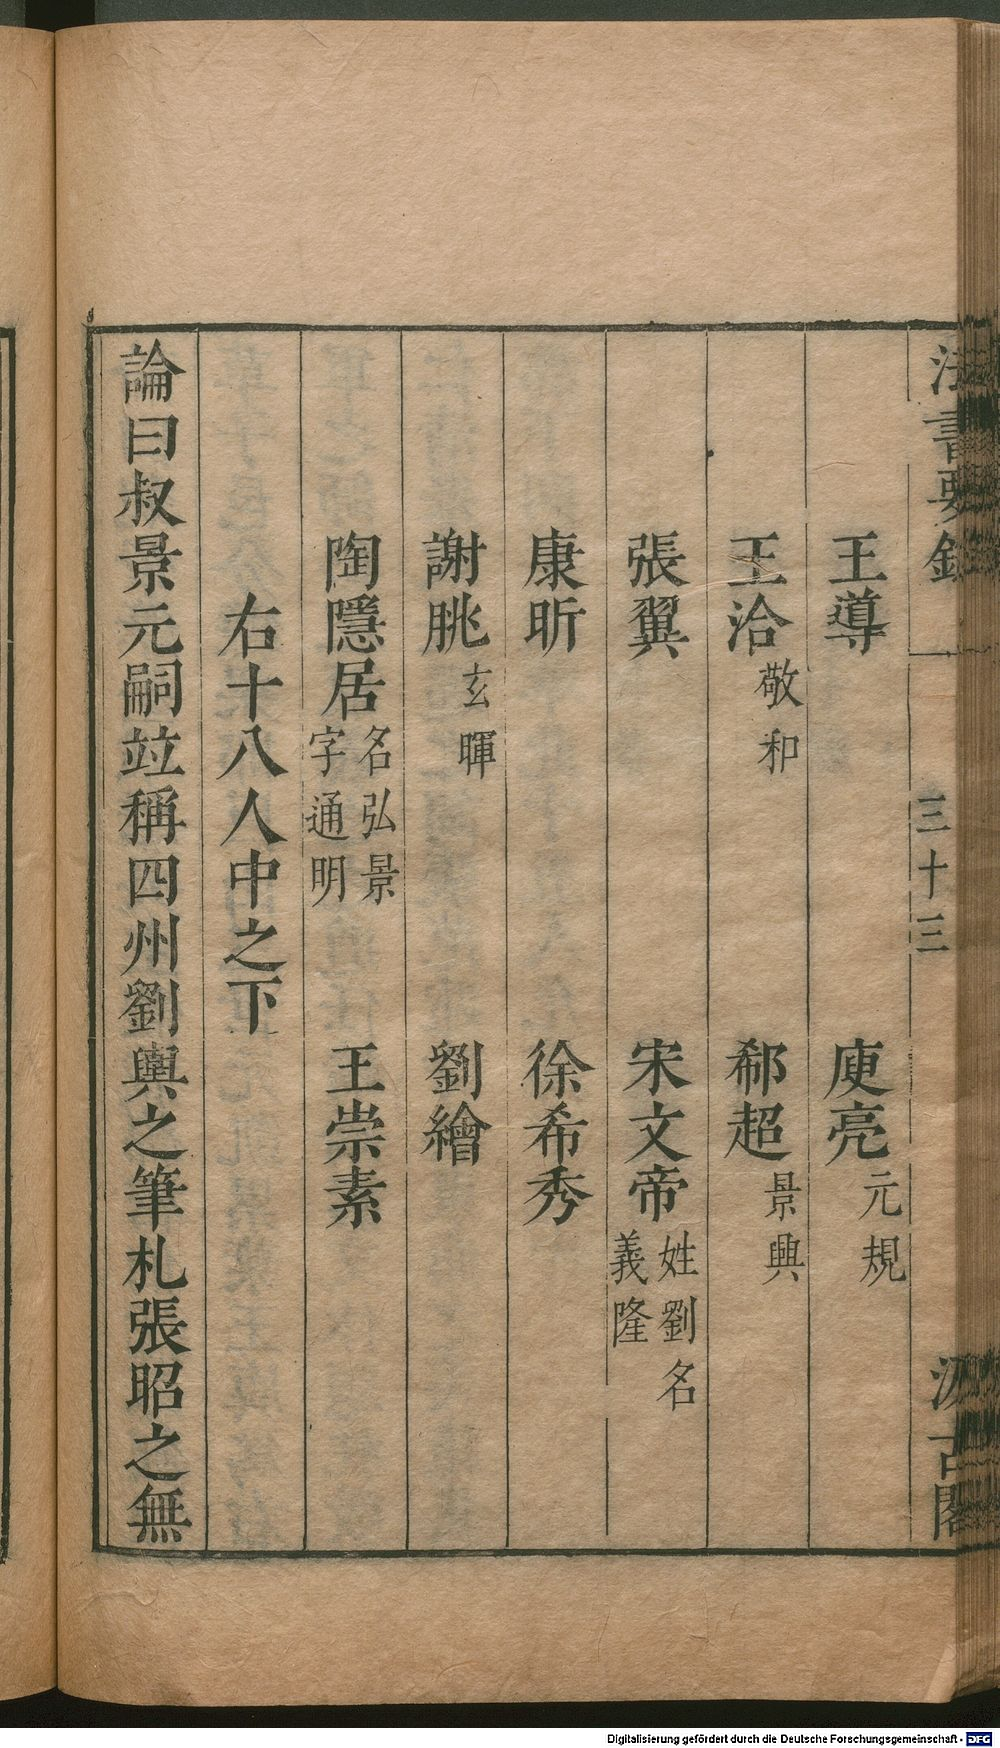 法書要錄 一 三十三 汲古閣
王導 庾亮元規
王洽敬和 郗超景興
張翼 宋文帝姓劉名義隆
康昕 徐希秀
謝朓玄暉 劉繪
陶隱居名弘景字通明 王崇素
右十八人中之下
論曰叔景元嗣竝稱四州劉輿之筆札張昭之無
Digitalisierung gefördert durch die Deutsche Forschungsgemeinschaft - DFG